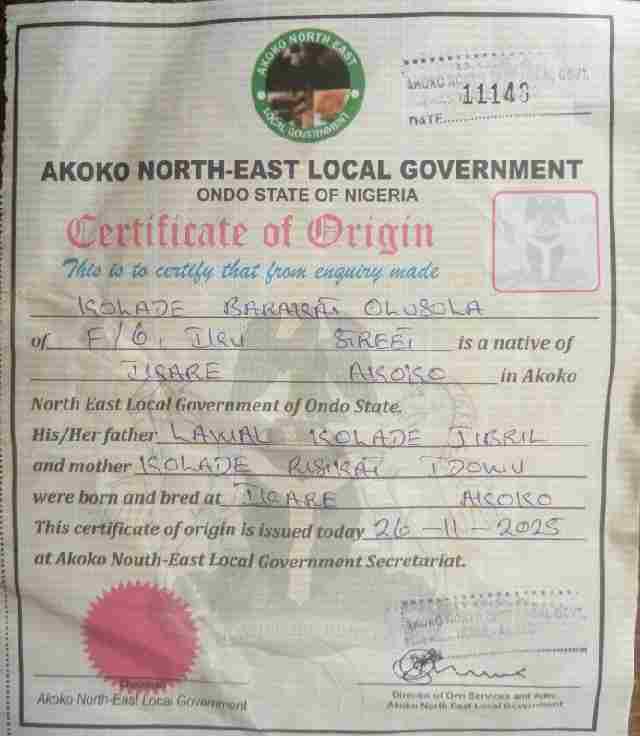 AKOKO NORTH-EAST
LOCAL GOVERNMENT
AKOKO NOR GOVT.
11143
DATE
AKOKO NORTH-EAST LOCAL GOVERNMENT
ONDO STATE OF NIGERIA
Certificate of Origin
This is to certify that from enquiry made
KOLADE BARAKAT OLUSOLA
of F/6, IKU STREET is a native of
IKARE AKOKO in Akoko
North East Local Government of Ondo State.
His/Her father LAWAL KOLADE JIBRIL
and mother KOLADE RISIKAT IDOWU
were born and bred at IKARE AKOKO
This certificate of origin is issued today 26-11-2025
at Akoko Nouth-East Local Government Secretariat.
Akoko North-East Local Government
Director of Services and Adm.
Akoko North East Local Government